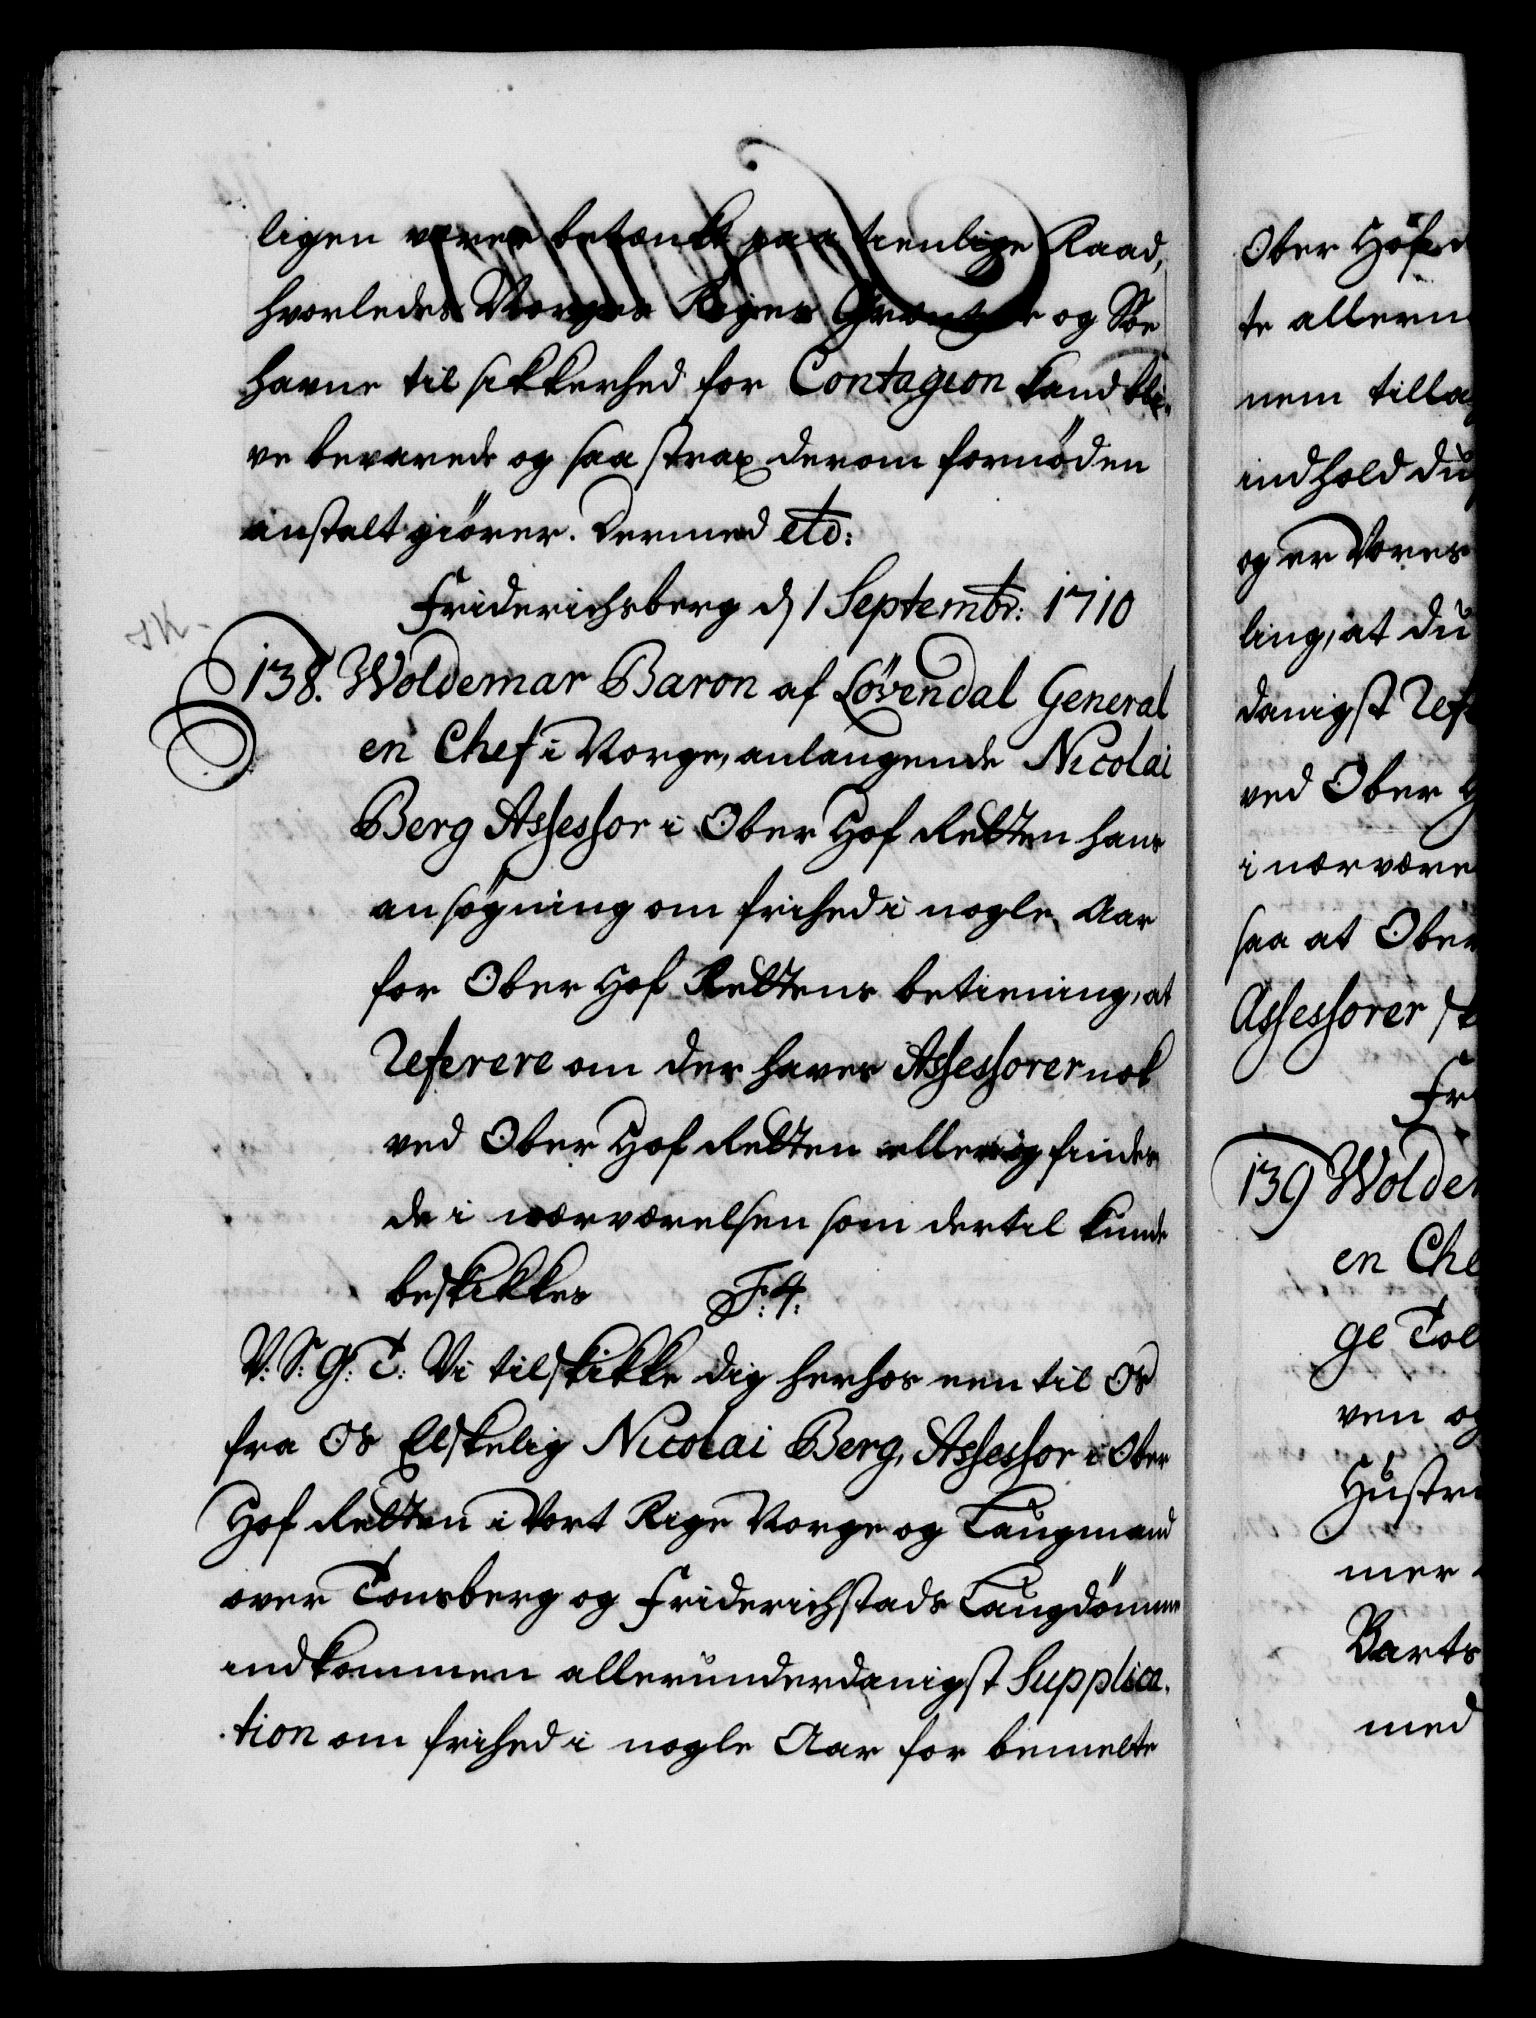 ligen værer betænkt paa tienlige Raad,
hvorledes Norges Riges Grentzer og Søe
havne til sikkerhed for Contagion kand bli-
ve bevarede og saa strax derom fornøden
anstalt giører. Dermed etc:
Friderichsberg d 1 Septembr: 1710
138. Woldemar Baron af Løvendal General
en Chef i Norge, anlangende Nicolai
Berg Assessor i Ober Hof Retten hans
ansøgning om frihed i nogle Aar
for Ober Hof Rettens betiening, at
referere om der haves Assessorer nok
ved Ober Hof Retten eller og findes
de i nærværelsen som dertil kunde
beskikkes F: 4:
V: S: G: T: Vi tilskikke dig herhos een til Os
fra Os Elskelig Nicolai Berg, Assessor i Ober
Hof Retten i Vort Rige Norge og Laugmand
over Tonsberg og Friderichstads Laugdømme
indkommen allerunderdanigst Supplica-
tion om frihed i nogle Aar for bemelte
Ober Hof
te allern
nem tilla
indhold du
og er Vores
ling, at du
danigst Ref
ved Ober H
i nærvære
saa at Ober
Assessorer
Fr
139 Wolde
en Che
ge Tol
ven og
Hustr
mer
Barts
med